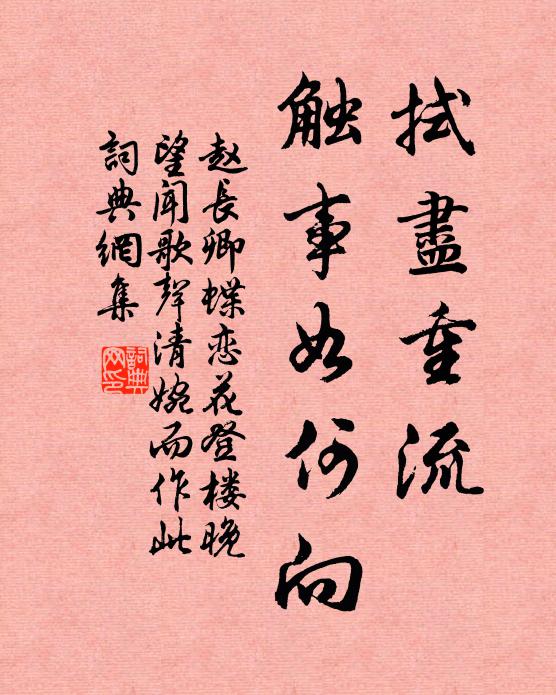 拭盡重流
触事如何向
赵長卿蝶恋花登楼晚
望闻歌聲清婉而作此
詞典網集
詞典网印